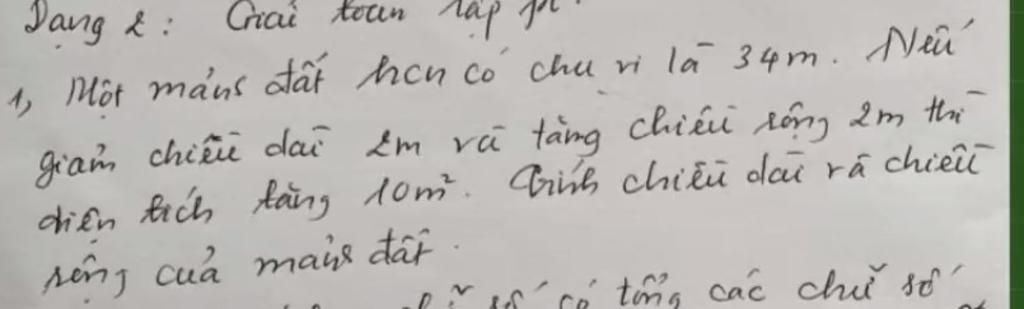 Dạng 2: Giải toán lập pt.
1, Một mảnh đất hcn có chu vi là 34m. Nếu
giảm chiều dài 2m và tăng chiều rộng 2m thì
diện tích tăng 10m². Tính chiều dài và chiều
rộng của mảnh đất.
số có tổng các chữ số